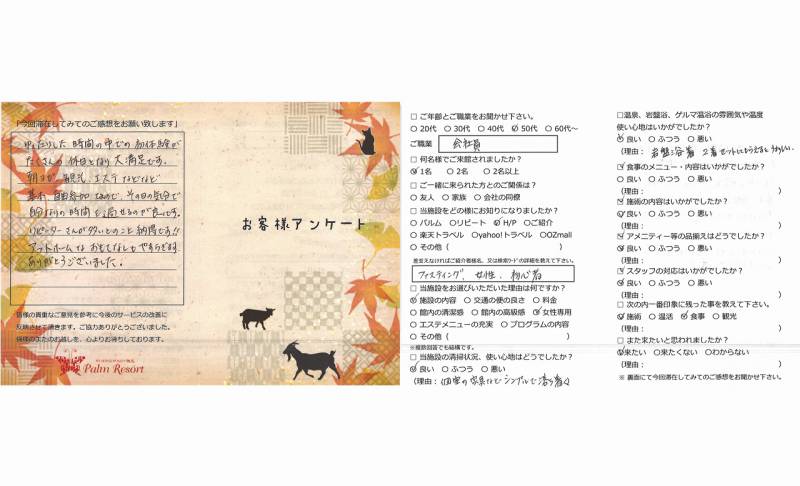 「今回滞在してみてのご感想をお願い致します」
ゆったりした時間の中での初体験が
たくさんの休日となり大満足です。
朝ヨガ、観光、エステなどなど
基本、自由参加なので、その日の気分で
自分なりの時間を過せるのが良いです。
リピーターさんが多いとのこと納得です!!
アットホームなおもてなしもやすらぎます。
ありがとうございました。
皆様の貴重なご意見を参考に今後のサービスの改善に
反映させて頂きます。ご協力ありがとうございました。
皆様のまたのお越しを、心よりお待ちしております。
Palm Resort
お客様アンケート
□ ご年齢とご職業をお聞かせ下さい。
○ 20代 ○ 30代 ○ 40代 ○ 50代 ○ 60代～
ご職業 会社員
□ 何名様でご来館されましたか?
○ 1名 ○ 2名 ○ 2名以上
□ ご一緒に来られた方とのご関係は?
○ 友人 ○ 家族 ○ 会社の同僚
□ 当施設をどの様にお知りになりましたか?
○ パルム ○リピート ○ H/P ○ご紹介
○ 楽天トラベル ○yahoo!トラベル ○OZmall
○ その他 ( )
差支えなければご紹介者様名、又は検索ワードの詳細を教えて下さい。
ファスティング、女性、初心者
□ 当施設をお選びいただいた理由は何ですか?
○ 施設の内容 ○ 交通の便の良さ ○ 料金
○ 館内の清潔感 ○ 館内の高級感 ○ 女性専用
○ エステメニューの充実 ○ プログラムの内容
○ その他 ( )
※複数回答でも結構です。
□ 当施設の清掃状況、使い心地はどうでしたか?
○ 良い ○ ふつう ○ 悪い
(理由:
□温泉、岩盤浴、ゲルマ温浴の雰囲気や温度
使い心地はいかがでしたか?
○ 良い ○ ふつう ○ 悪い
(理由: 岩盤浴着 2着セットにもらえると うれしい
□ 食事のメニュー・内容はいかがでしたか?
○ 良い ○ ふつう ○ 悪い
(理由: )
□ 施術の内容はいかがでしたか?
○ 良い ○ ふつう ○ 悪い
(理由: )
□ アメニティー等の品揃えはどうでしたか?
○ 良い ○ ふつう ○ 悪い
(理由: )
□ スタッフの対応はいかがでしたか?
○ 良い ○ ふつう ○ 悪い
(理由: )
□ 次の内一番印象に残った事を教えて下さい。
○ 施術 ○ 温活 ○ 食事 ○ 観光
□ また来たいと思われましたか?
○ 来たい ○ 来たくない ○わからない
(理由: )
※ 裏面にて今回滞在してみてのご感想をお聞かせ下さい。